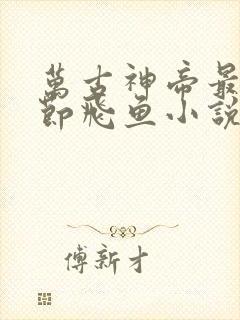 萬古神帝最
節飛魚小說
傅新才